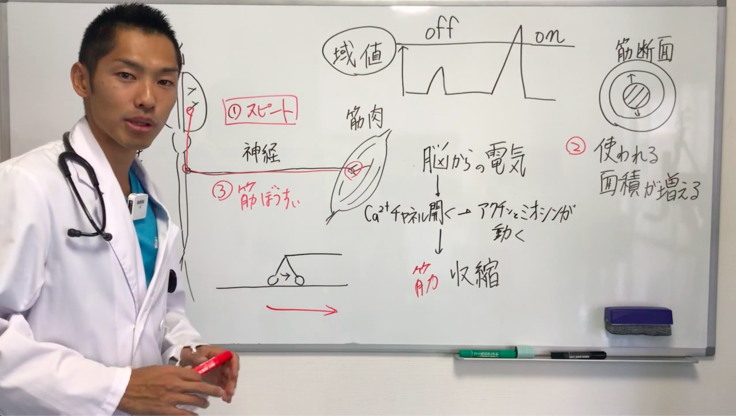 域値
off
on
筋断面
①スピード
筋肉
神経
脳からの電気
②使われる
面積が増える
③筋ぼうすい
Ca²⁺チャネル開く→アクチンとミオシンが
動く
筋力 収縮